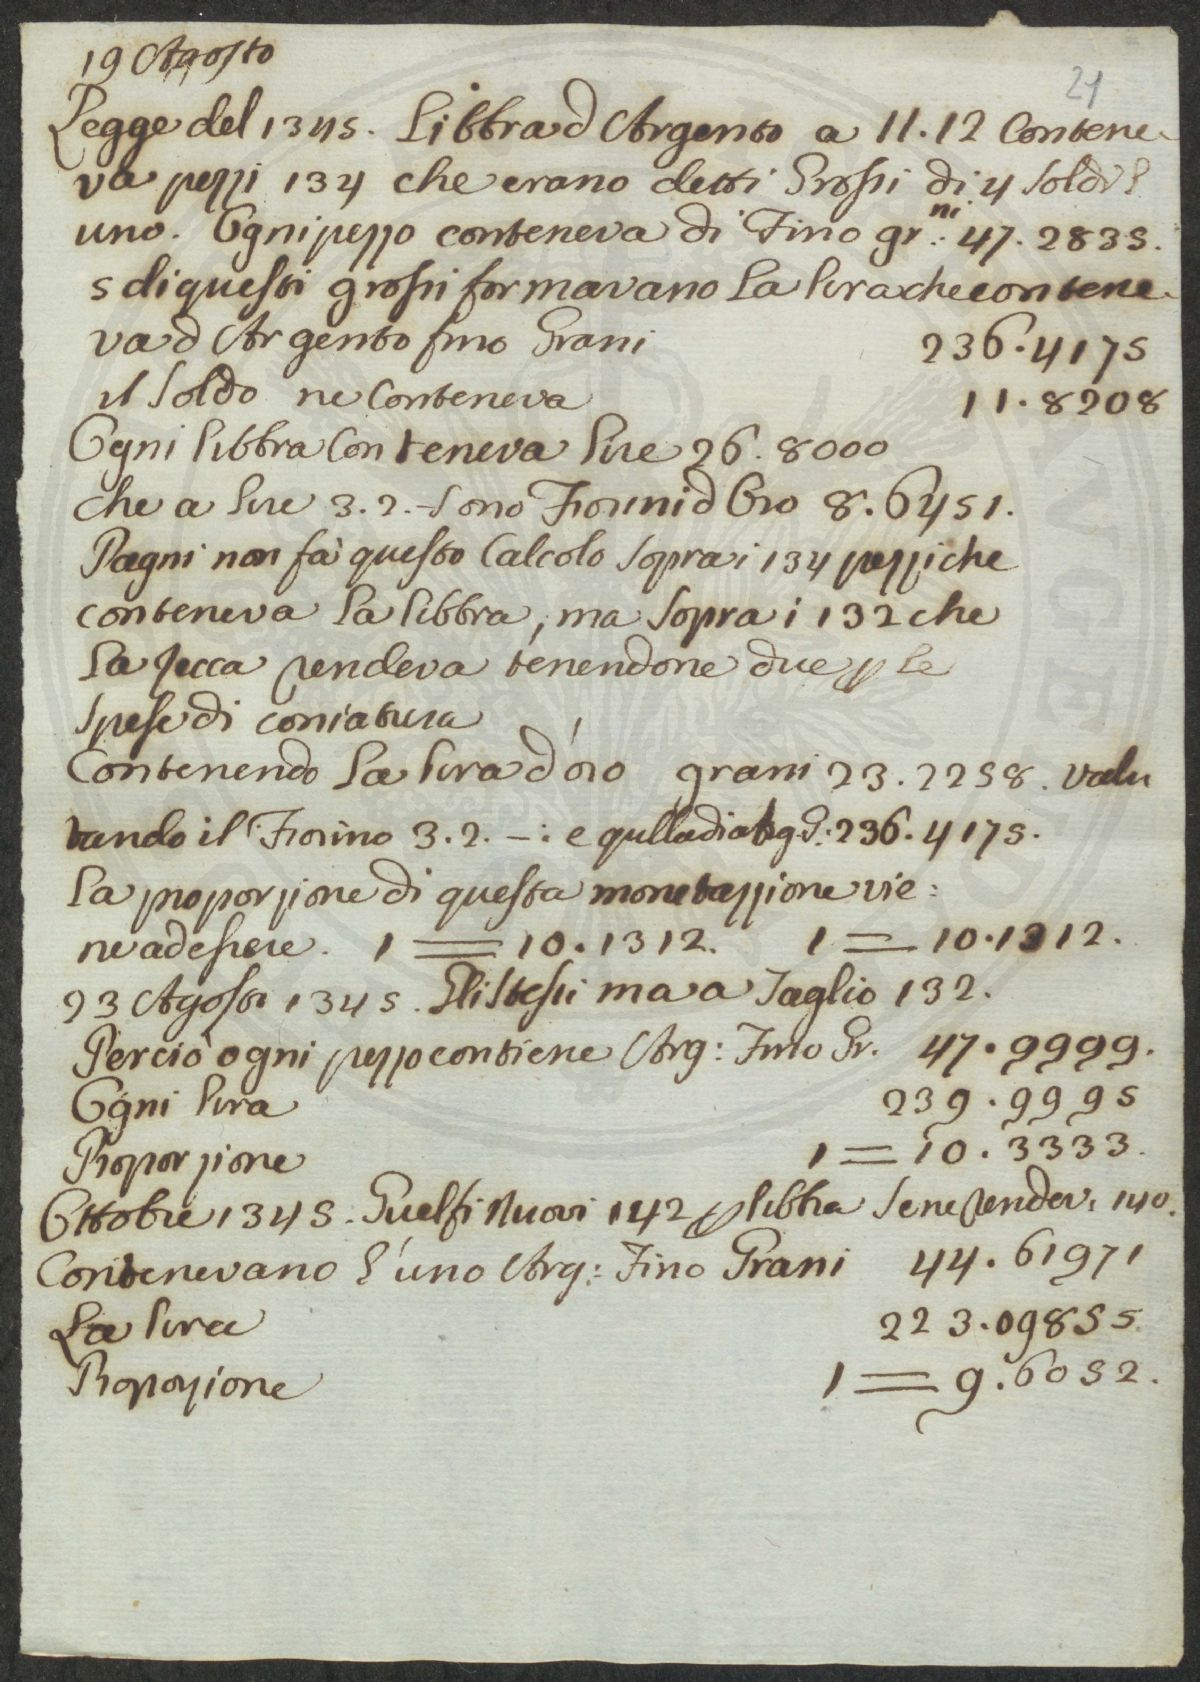 19 Agosto
21
Legge del 1345. Libbra d Argento a 11.12 Contene-
va pezzi 134 che erano detti Grossi di 4 Soldi l
uno. Ogni pezzo conteneva di Fino gr.ni 47.2835.
5 di questi grossi formavano La lira che contene-
va d Argento fino Grani 236.4175
il Soldo ne Conteneva 11.8208
Ogni libbra Conteneva lire 26.8000
che a lire 3.2.- sono Fiorini d Oro 8.6451.
Pagni non fà questo Calcolo sopra i 134 pezzi che
conteneva La libbra, ma sopra i 132 che
La Zecca rendeva tenendone due p le
spese di coniatura
Contenendo La lira d'oro grani 23.2258. valu
tando il Fiorino 3.2.-: e qulla di Arg. G: 236.4175.
La proporzione di questa monetazzione vie:
ne ad essere. 1 = 10.1312. 1 = 10.1312.
23 Agosto 1345. Gli Stessi ma a Taglio 132.
Perciò ogni pezzo contiene Arg: Fino Gr. 47.9999.
Ogni lira 239.9995
Proporzione 1 = 10.3333.
Ottobre 1345. Guelfi Nuovi 142 p libbra Se ne rendev: 140.
Contenevano l'uno Arg: Fino Grani 44.61971
La lira 223.09855
Proporzione 1 = 9.6052.